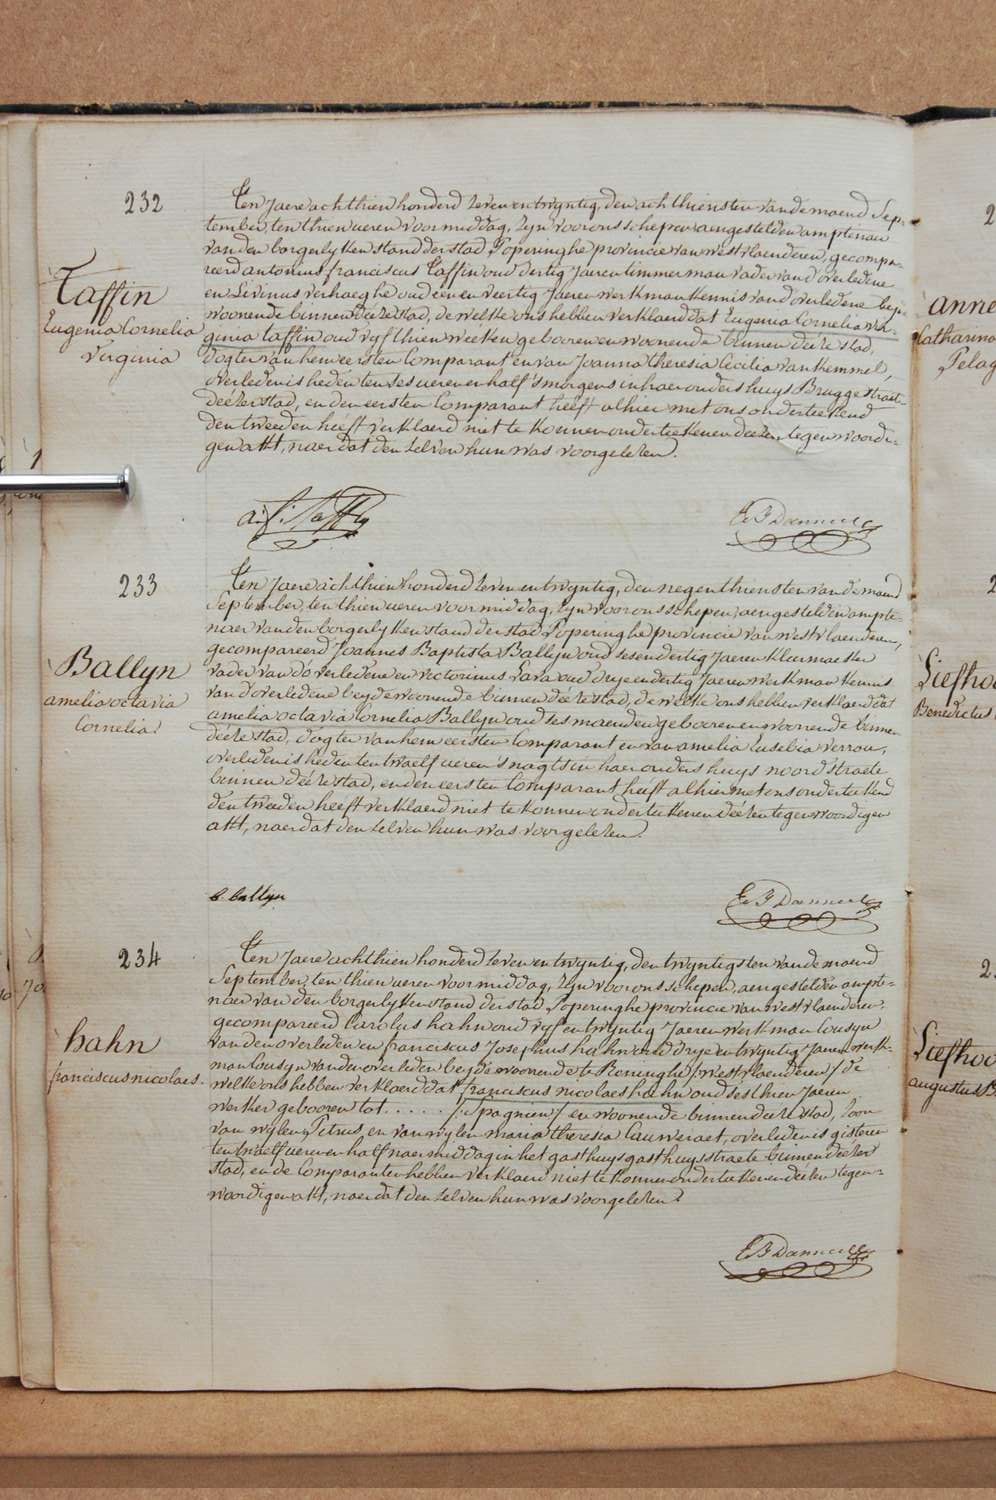 232
Ten Jaere achthien honderd zeven en twyntig, den achthiensten van de maend Sep-
tember, ten thien ueren voormiddag, zyn voor ons schepen aengestelden amptenaer
van den borgerlyken stand der stad Poperinghe provincie van westvlaenderen, gecompa-
reerd antonius franciscus Taffin oud dertig Jaeren timmerman vader van d'overledene
en Livinus verhaeghe oud een en veertig Jaeren werkman kennis van d'overledene beyde
woonende binnen deéze stad, de welke ons hebben verklaerd dat Eugenia Cornelia vir-
ginia taffin oud vyfthien weeken gebooren en woonende binnen deéze stad,
dogter van hem eersten Comparant en van Joanna theresia Cecilia van hemmel,
overleden is heden ten ses ueren en half 's morgens in haer ouders huys Brugge straete
deézer stad, en den eersten Comparant heeft alhier met ons onderteekend
den tweeden heeft verklaerd niet te konnen onderteekenen deézen tegenwoordi-
gen akt, naer dat den zelven hun was voorgelezen.
Taffin
Eugenia Cornelia
Virginia
a: f: Taffin
233
Ten Jaere achthien honderd zeven en twyntig, den negenthiensten van de maend
September, ten thien ueren voormiddag, zyn voor ons schepen, aengestelden ampte-
naer van den borgerlyken stand der stad Poperinghe provincie van westvlaenderen,
gecompareerd Joannes Baptista Ballyn oud ses en dertig Jaeren kleermaeker
vader van d'overledene en victorinus Lara oud drye en dertig Jaeren werkman kennis
van d'overledene beyde woonende binnen deéze stad, de welke ons hebben verklaerd dat
amelia octavia Cornelia Ballyn oud ses maenden gebooren en woonende binnen
deéze stad, dogter van hem eersten Comparant en van amelia Eusebia verrou,
overleden is heden ten twaelf ueren 's nagts in haer ouders huys noordstraete
binnen deéze stad, en den eersten Comparant heeft alhier met ons onderteekend
den tweeden heeft verklaerd niet te konnen onderteekenen deézen tegenwoordigen
akt, naer dat den zelven hun was voorgelezen.
Ballyn
amelia octavia
Cornelia
b ballyn
234
Ten Jaere achthien honderd zeven en twyntig, den twyntigsten van de maend
September, ten thien ueren voormiddag, zyn voor ons schepen, aengestelden ampte-
naer van den borgerlyken stand der stad Poperinghe provincie van westvlaenderen,
gecompareerd Carolus hahn oud vyf en twyntig Jaeren werkman Cousyn
van den overleden en franciscus Josephus hahn oud drye en twyntig Jaeren werk-
man Cousyn van den overleden beyde woonende te Reninghe (westvlaenderen) de
welke ons hebben verklaerd dat franciscus nicolaes hahn oud sesthien Jaeren
werker gebooren tot . . . . . (Spagnien) en woonende binnen deéze stad, zoon
van wylen Petrus en van wylen maria theresia Cauweraet, overleden is gisteren
ten twaelf ueren en half naermiddag in het gasthuys gasthuysstraete binnen deézer
stad, en de Comparanten hebben verklaerd niet te konnen onderteekenen deézen tegen-
woordigen akt, naer dat den zelven hun was voorgelezen.
hahn
franciscus nicolaes.
anne
Catharina
Pelag
Liefhoo
Benedictus
Liefhoo
augustus B